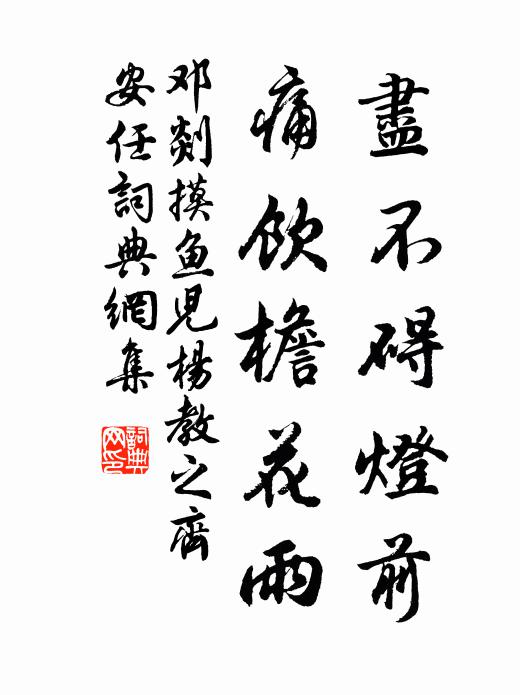 盡不碍燈前
痛飲檐花雨
邓剡摸鱼児楊教之齊
安任詞典網集
詞典网印